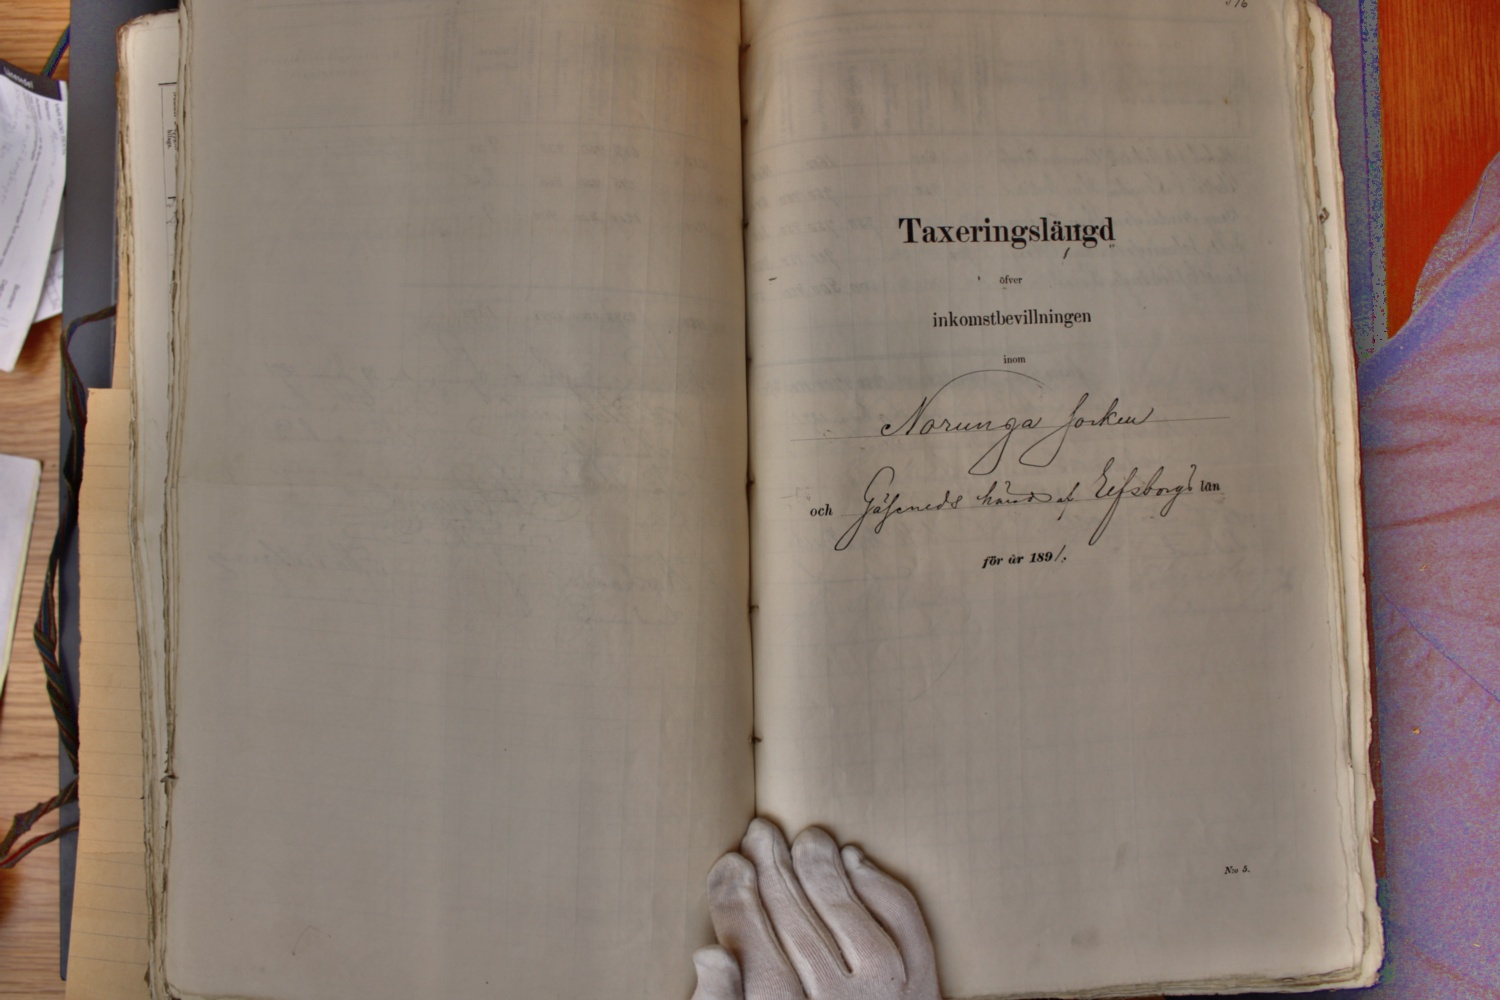 Taxeringslängd
öfver
inkomstbevillningen
inom
Norunga socken
och Gäseneds härad af Elfsborgs län
för år 1891.
N:o 5.